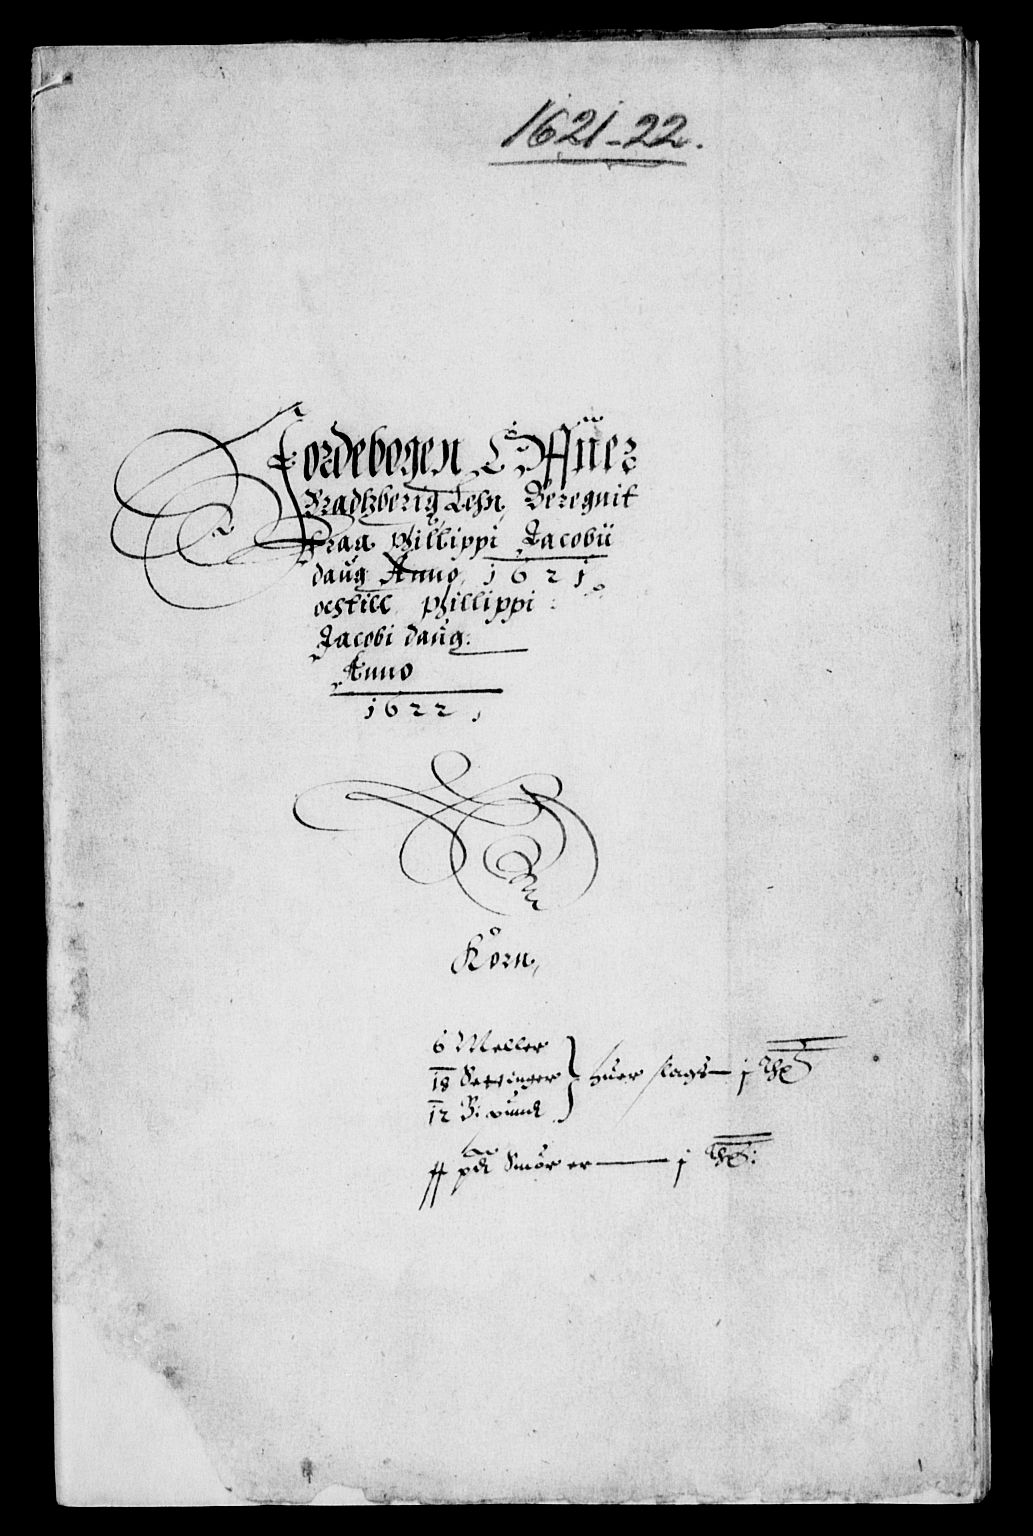 1621-22.
Jordebogen Offuer
Bradtzberig Lehn, Beregnit
fraa phillippi Jacobü
daug Anno, 1621,
och till phillippi
Jacobi daug.
Anno
1622,
Korn,
6 Meller
18 Settinger } huer slags — j
12 Bi pund
pd Smör er — j